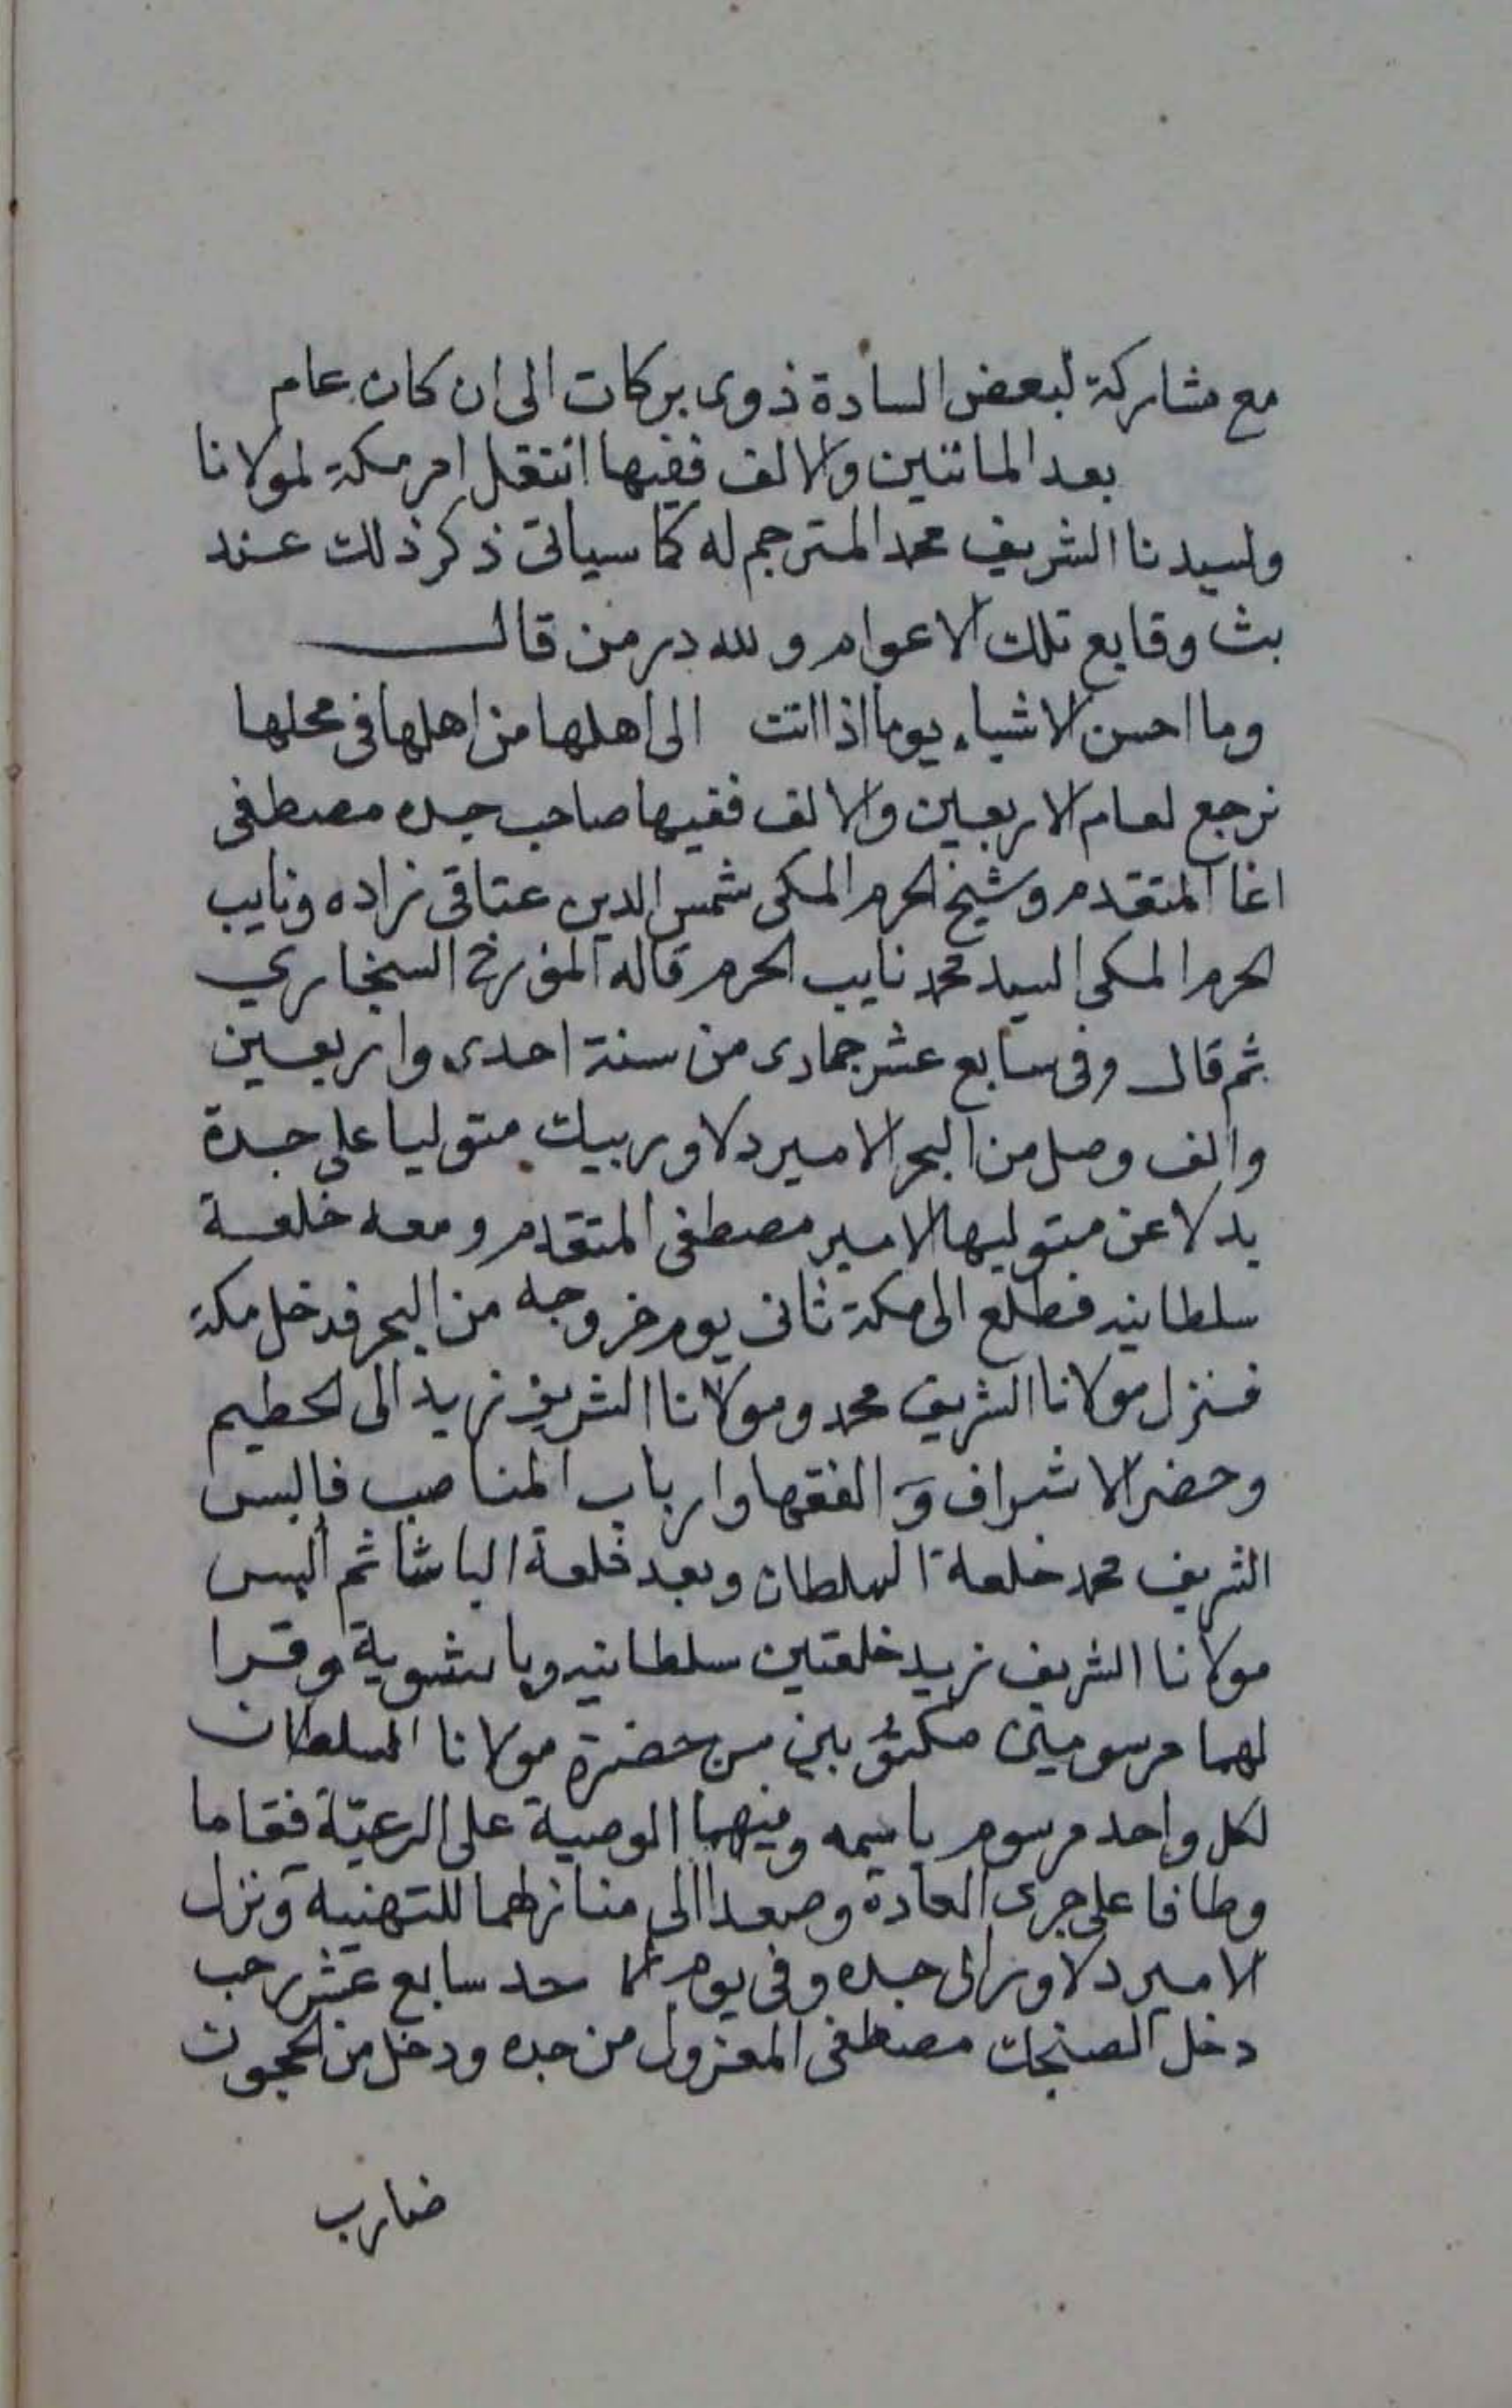 مع مشاركة لبعض السادة ذوى بركات الى ان كان عام
بعد المائتين والالف ففيها انتقل امر مكة لمولانا
ولسيدنا الشريف محمد المترجم له كما سياتى ذكر ذلك عند
بث وقايع تلك الاعوام ولله در من قال
وما احسن الاشياء يوما اذا اتت الى اهلها من اهلها فى محلها
نرجع لعام الاربعين والالف ففيها صاحب جده مصطفى
اغا المتقدم وشيخ الحرم المكى شمس الدين عتاقى زاده ونايب
الحرم المكى السيد محمد نايب الحرم قاله المؤرخ السنجاري
ثم قال وفى سابع عشر جمادى من سنة احدى واربعين
والف وصل من البحر الامير دلاور بيك متوليا على جدة
بدلا عن متوليها الامير مصطفى المتقدم ومعه خلعة
سلطانيه فطلع الى مكة ثانى يوم خروجه من البحر فدخل مكة
فنزل مولانا الشريف محمد ومولانا الشريف زيد الى الحطيم
وحضر الاشراف والفقها وارباب المناصب فالبس
الشريف محمد خلعة السلطان وبعد خلعة الباشا ثم البس
مولانا الشريف زيد خلعتين سلطانيه وباشوية وقرا
لهما مرسومين مكتوبين من حضرة مولانا السلطان
لكل واحد مرسوم باسمه وفيهما الوصية على الرعيّة فقاما
وطافا على جرى العادة وصعدا الى منازلهما للتهنيه ونزل
الامير دلاور الى جده وفى يوم الاحد سابع عشر رجب
دخل الصنجك مصطفى المعزول من جده ودخل من الحجون
ضارب